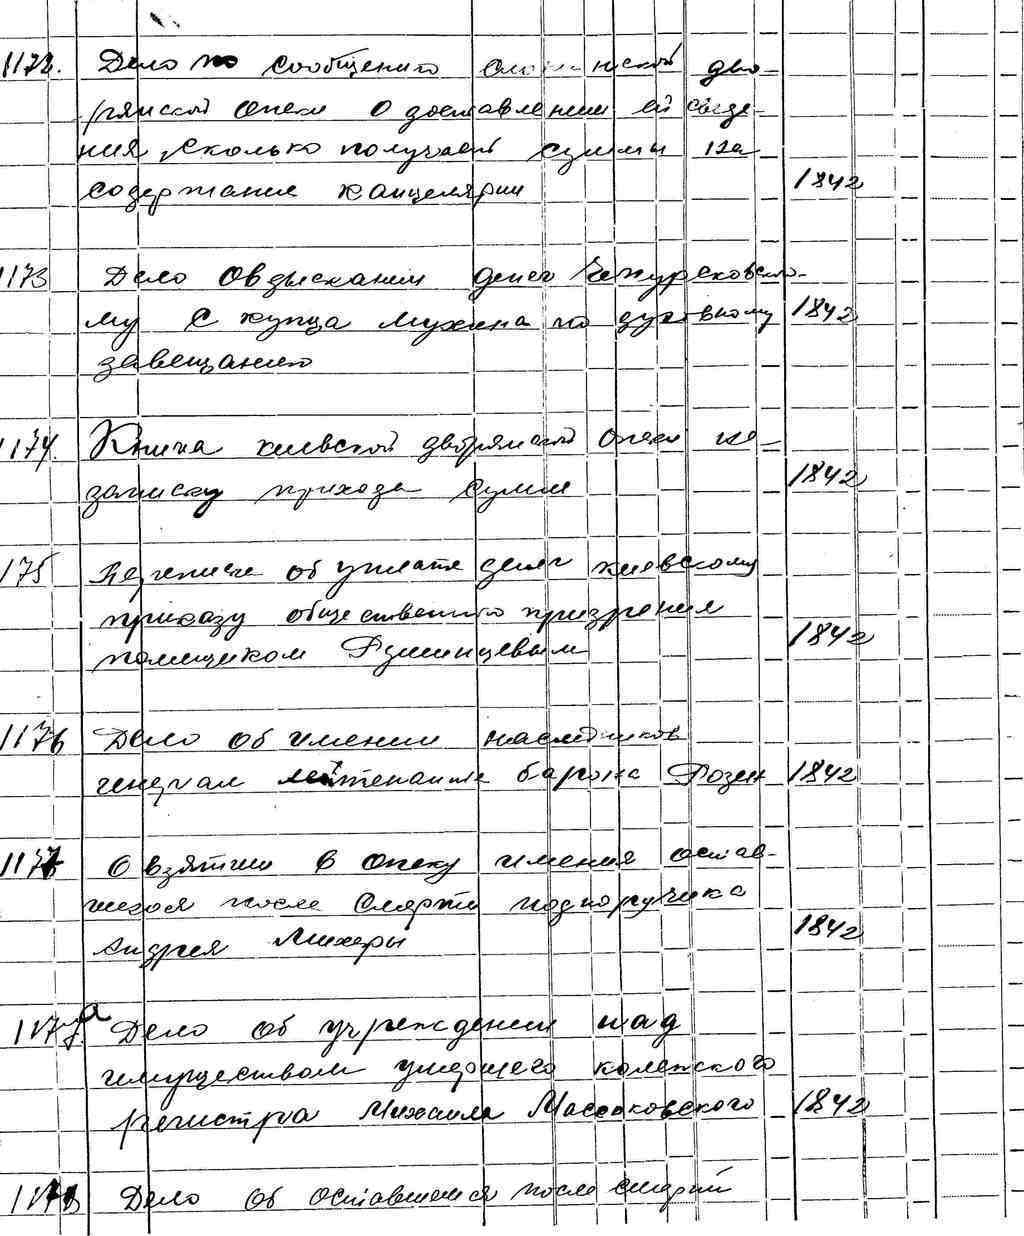 1172. Дело по сообщению
рянской опеки о доставлении ей сведе-
ния, сколько получает суммы на
содержание канцелярии 1842
1173 Дело о взыскании денег
му с купца Мухина по духовному 1842
завещанию
1174. Книга киевской дворянской опеки на
записку прихода сумм 1842
175 об уплате денег киевскому
приказу общественного призрения
помещиком Румянцевым 1842
1176 Дело об имении наследников
генерал лейтенанта барона Розен 1842
1177 О взятии в опеку имения остав-
шегося после смерти подпоручика
Андрея 1842
1177а Дело об учреждении над
имуществом умершего колежского
регистра Михаила 1842
1178 Дело об оставшемся после смерти